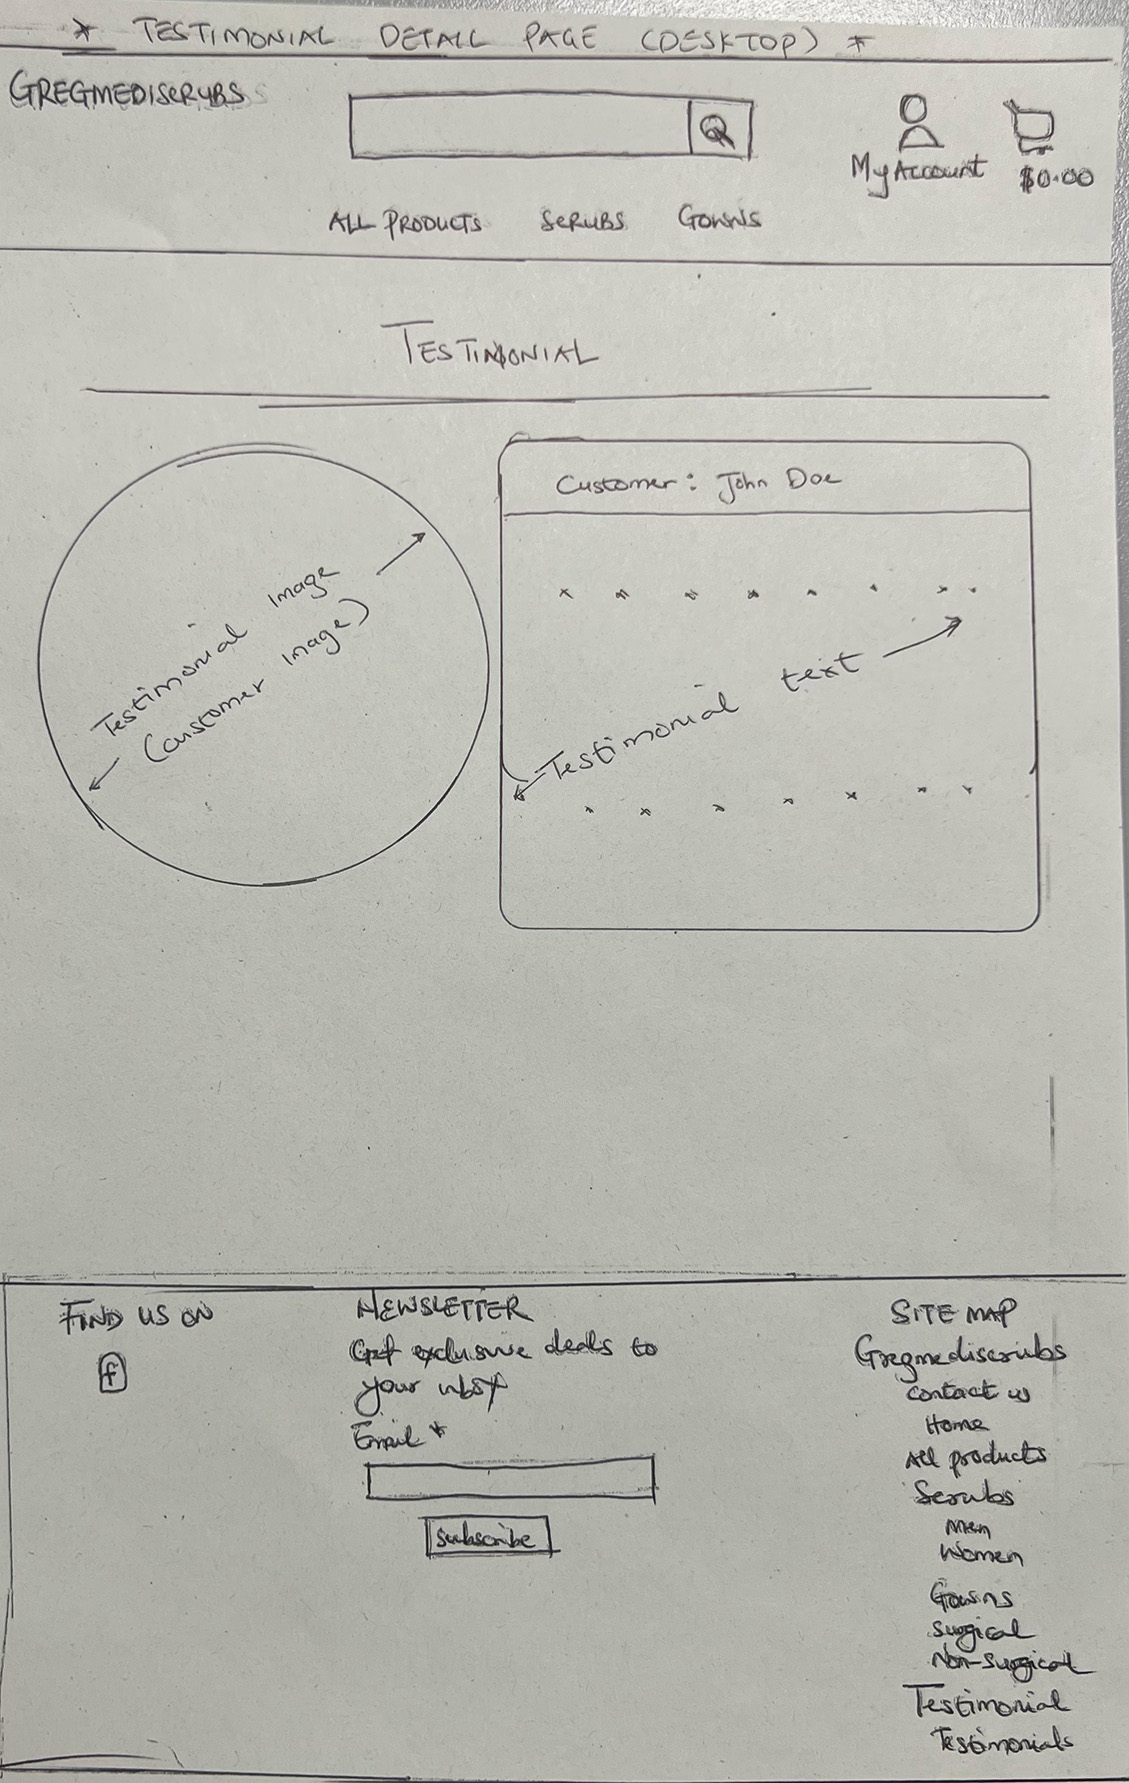 * TESTIMONIAL DETAIL PAGE (DESKTOP) *
GREGMEDISCRUBS
My Account
$0.00
ALL PRODUCTS SCRUBS GOWNS
TESTIMONIAL
Testimonial Image
(customer image)
Customer: John Doe
Testimonial text
FIND US ON
f
NEWSLETTER
Get exclusive deals to
your inbox
Email *
Subscribe
SITE MAP
Gregmediscrubs
Contact us
Home
All products
Scrubs
Men
Women
Gowns
Surgical
Non-Surgical
Testimonial
Testimonials